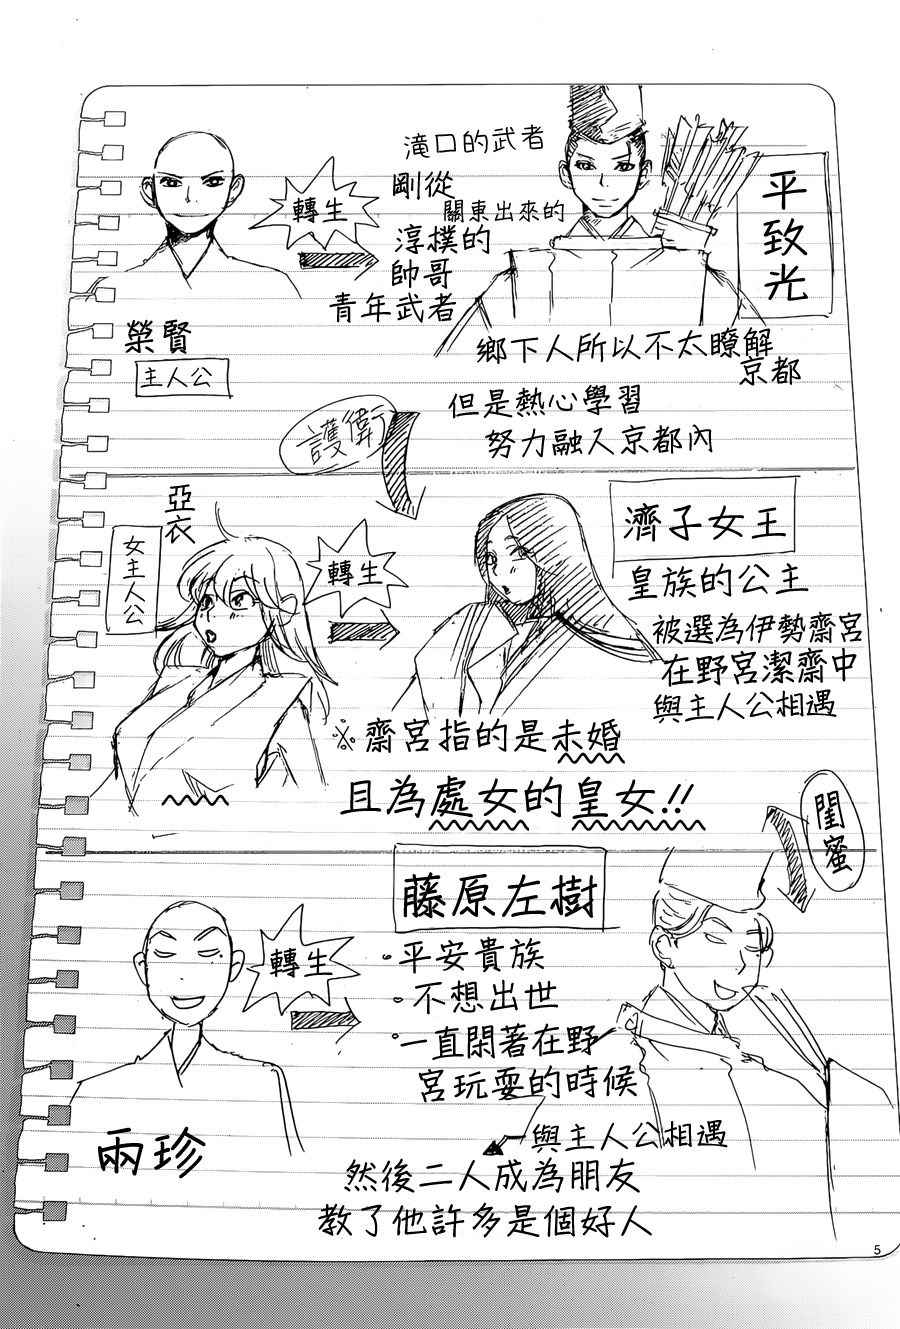 滝口的武者
剛從
關東出來的
淳樸的
帥哥
青年武者
平致光
轉生
榮賢
主人公
鄉下人所以不太瞭解
京都
但是熱心學習
努力融入京都內
護衛
亞衣
女主人公
轉生
濟子女王
皇族的公主
被選為伊勢齋宮
在野宮潔齋中
與主人公相遇
※齋宮指的是未婚
且為處女的皇女!!
閨蜜
藤原左樹
轉生
・平安貴族
・不想出世
・一直閑著在野
宮玩耍的時候
與主人公相遇
兩珍
然後二人成為朋友
教了他許多是個好人
5